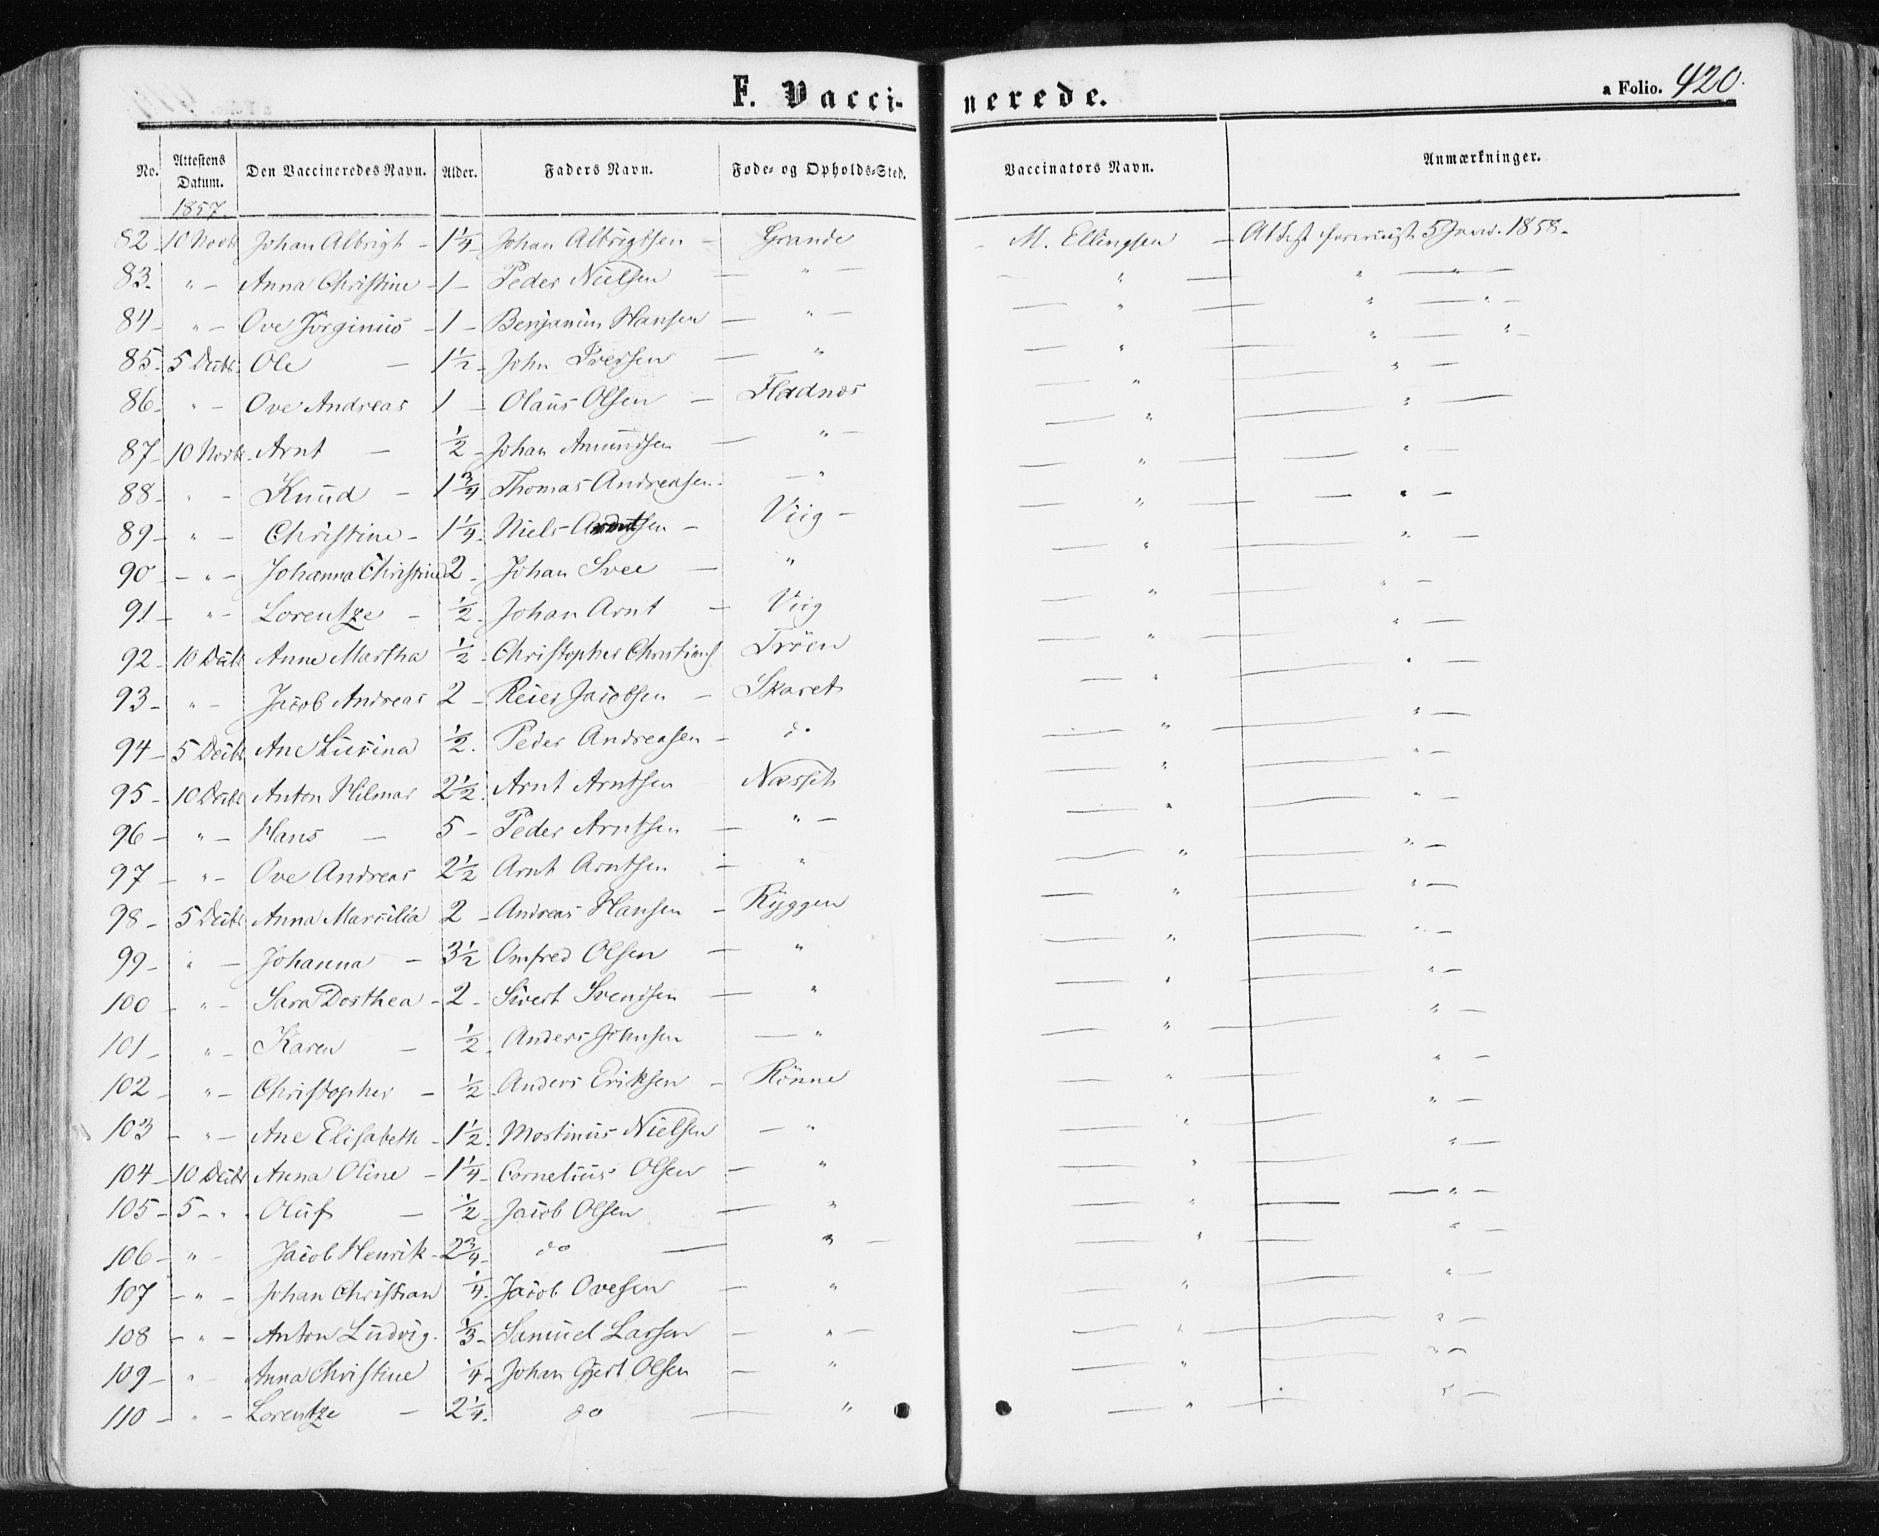 F. Vacci- nerede. a Folio. 420.
No. Attestens Datum. Den Vaccineredes Navn. Alder. Faders Navn. Føde- og Opholds-Sted. Vaccinators Navn. Anmærkninger.
1857.
82 - 10 Novb Johan Albrigt - 1 1/4 - Johan Albrigtsen - Grande - M. Ellingsen - Attest 5 Janv. 1858 -
83 - " - Anna Christine - 1 - Peder Nielsen - " - " - " -
84 - " - Ove Jörginus - 1 - Benjamin Hansen - " - " - " -
85 - 5 Decbr. Ole - 1 1/2 - John Iversen - " - " - " -
86 - " - Ove Andreas 1 - Olaus Olsen - Fladnes - " - " -
87 - 10 Novbr. Arnt - 1/2 - Johan Amundsen - " - " - " -
88 - " - Knud - 1 3/4 - Thomas Andreasen - " - " - " -
89 - " - Christine - 1 1/4 - Niels Arntsen - Viig - " - " -
90 - " - Johanna Christine 2 - Johan Svee - " - " - " -
91 - " - Lorentze - 1/2 - Johan Arnt - Viig - " - " -
92 - 10 Decbr Anne Martha 1/2 - Christopher Tröen - " - " -
93 - " - Jacob Andreas 2 - Reier Jacobsen - Skaret - " - " -
94 - 5 Decbr Ane Lucina 1/2. Peder Andreasen - do - " - " -
95 - 10 Decbr Anton Hilmar 2 1/2. Arnt Arntsen Næsset - " - " -
96 - " - Hans - 5 - Peder Arntsen - " - " - " -
97 - " - Ove Andreas 2 1/2 Arnt Arntsen - " - " - " -
98 - 5 Decbr Anna Marcilia 2 - Andreas Hansen - Ryggen - " - " -
99 - " - Johanna - 3 1/2 Omfred Olsen - " - " - " -
100 " - Sara Dorthea - 2 - Sivert Svendsen - " - " - " -
101 - " - Karen - 1/2 - Anders Johnsen - " - " - " -
102 - " - Christopher - 1/2 - Anders Eriksen - Rönne - " - " -
103 - " - Ane Elisabeth - 1 1/2. Mortinus Nielsen - " - " - " -
104 - 10 Decbr Anna Oline - 1 1/4 - Cornelius Olsen - " - " - " -
105 - 5 - " - Oluf - 1/2 - Jacob Olsen - " - " - " -
106 - " - Jacob Henrik - 2 3/4 - do - " - " - " -
107 - " - Johan Christian 1/4. Jacob Ovesen - " - " - " -
108 - " - Anton Ludvig. 1/3 - Samuel Larsen - " - " - " -
109 - " - Anna Christine 1/4 - Johan Gjert Olsen - " - " - " -
110 - " - Lorentze - 2 1/4. do - " - " - " -